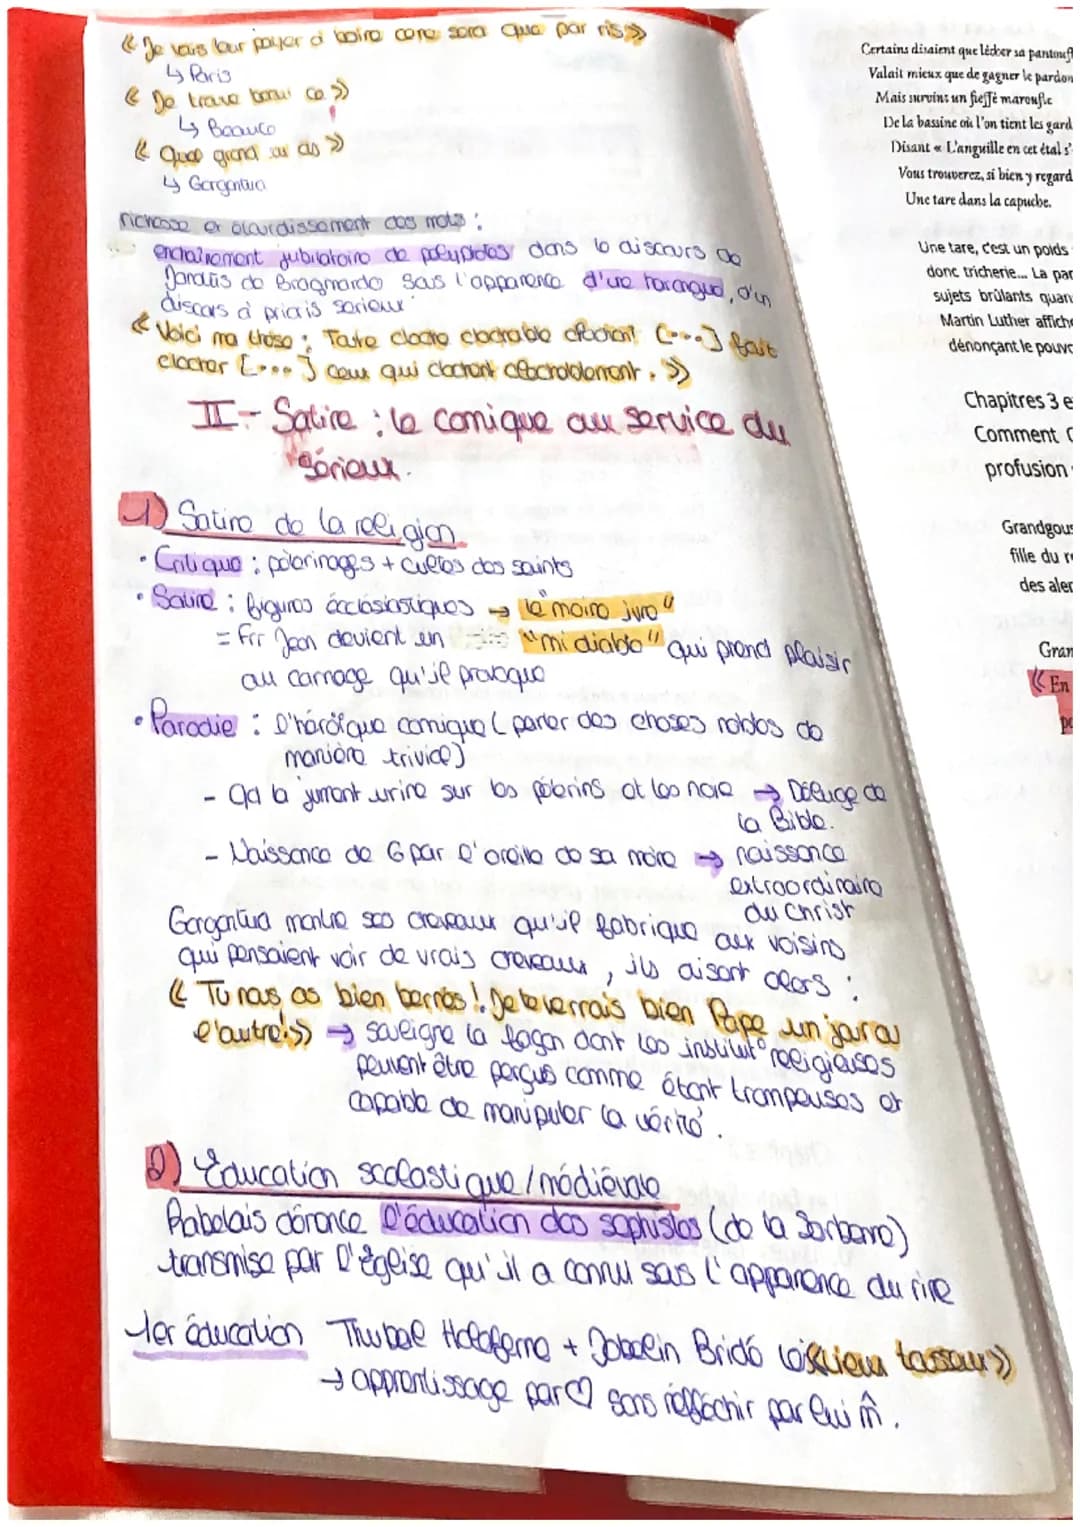 « Je vais leur payer à boire ce ne sera que par ris »
↳ Paris
« Je trouve beau ce »
↳ Beauce
« Que grand tu as »
↳ Gargantua
richesse et étourdissement des mots :
entraînement jubilatoire de polyptotes dans le discours de
Janotus de Bragmardo sous l'apparence d'une harangue, d'un
discours à priori sérieux
« Voici ma thèse : Toute cloche clochable [...] fait
clocher [...] ceux qui clochent clochablement. »
II - Satire : le comique au service du
sérieux.
1) Satire de la religion
• Critique : pèlerinages + cultes des saints
• Satire : figures écclésiastiques → "le moine jure"
= Frr Jean devient un "mi diable" qui prend plaisir
au carnage qu'il provoque
• Parodie : l'héroïque comique ( parler des choses nobles de
manière trivial)
- Qd la jument urine sur les pèlerins et les noie → Déluge de
la Bible.
- Naissance de G par l'oreille de sa mère → naissance
extraordinaire
du Christ
Gargantua montre ses chevaux qu'il fabrique aux voisins
qui pensaient voir de vrais chevaux, ils disent alors :
« Tu nous as bien bernés ! Je te verrais bien Pape un jour ou
l'autre ! » → souligne la façon dont les institut° religieuses
peuvent être perçus comme étant trompeuses et
capable de manipuler la vérité.
2) Éducation scolastique / médiévale
Rabelais dénonce l'éducation des sophistes (de la Sorbonne)
transmise par l'Église qu'il a connu sous l'apparence du rire
1er éducation Thubal Holoferne + Jobelin Bridé « vieux tousseux »
→ apprentissage par ♡ sans réfléchir par lui m̂.
Certains disaient que lécher sa pantoufl
Valait mieux que de gagner le pardon
Mais survins un fieffé maroufle
De la bassine où l'on tient les gard
Disant « L'anguille en cet étal s'
Vous trouverez, si bien y regard
Une tare dans la capuche.
Une tare, c'est un poids
donc tricherie... La par
sujets brûlants quan
Martin Luther affiche
dénonçant le pouvo
Chapitres 3 e
Comment G
profusion
Grandgous
fille du r
des aler
Gran
« En
po